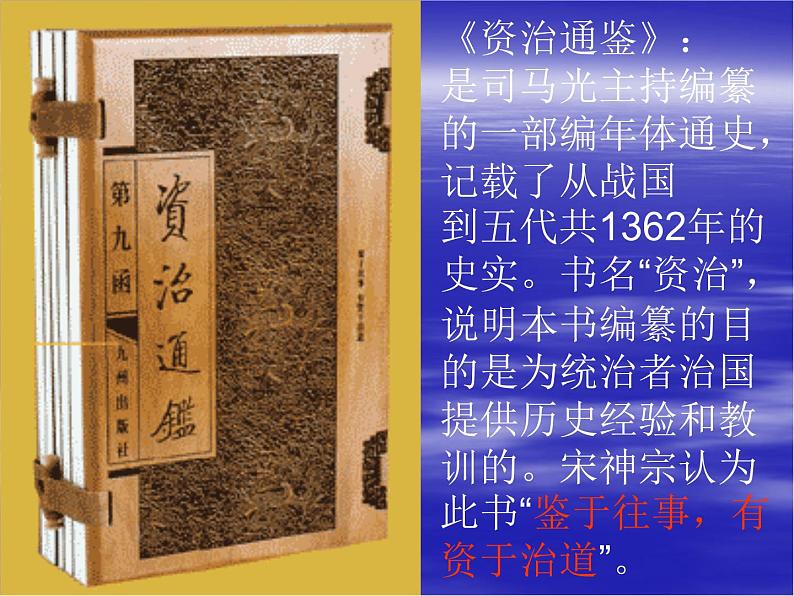 第九函
資治通鑑
九州出版社
《资治通鉴》：
是司马光主持编纂
的一部编年体通史，
记载了从战国
到五代共1362年的
史实。书名“资治”，
说明本书编纂的目
的是为统治者治国
提供历史经验和教
训的。宋神宗认为
此书“鉴于往事，有
资于治道”。